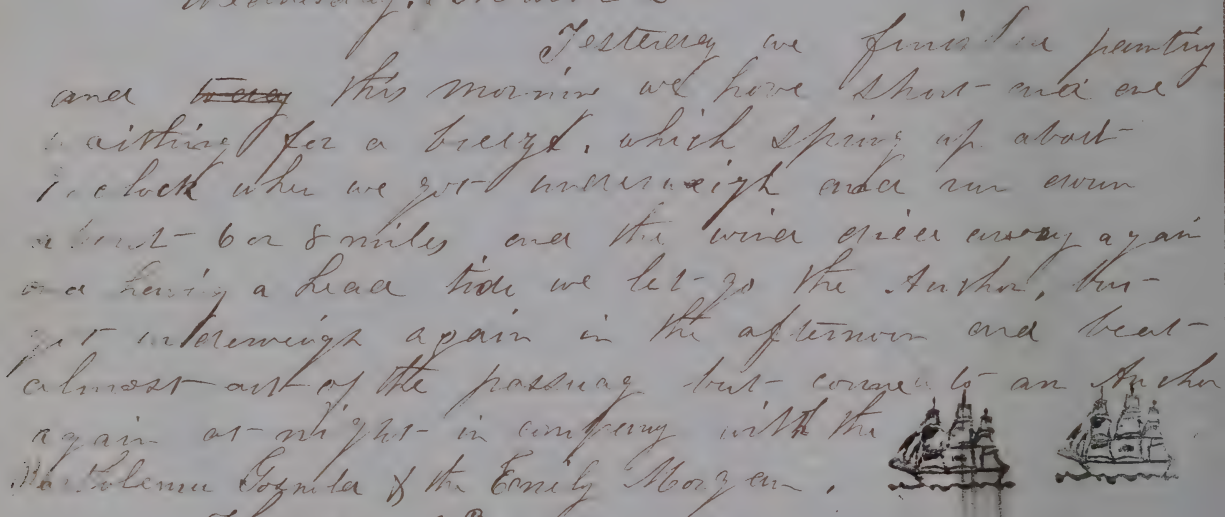 Wednesday,
Yesterday we finished painting
and to day this morning we hove short and are
waithing for a breeze, which spring up about
o clock when we got underweigh and run down
about 6 or 8 miles and the wind died away again
and having a head tide we let go the Anchor, but
got underweigh again in the afternoon and beat
almost out of the passuag but come to an Anchor
again at night in company with the
Gosnold & the Emily Morgan.